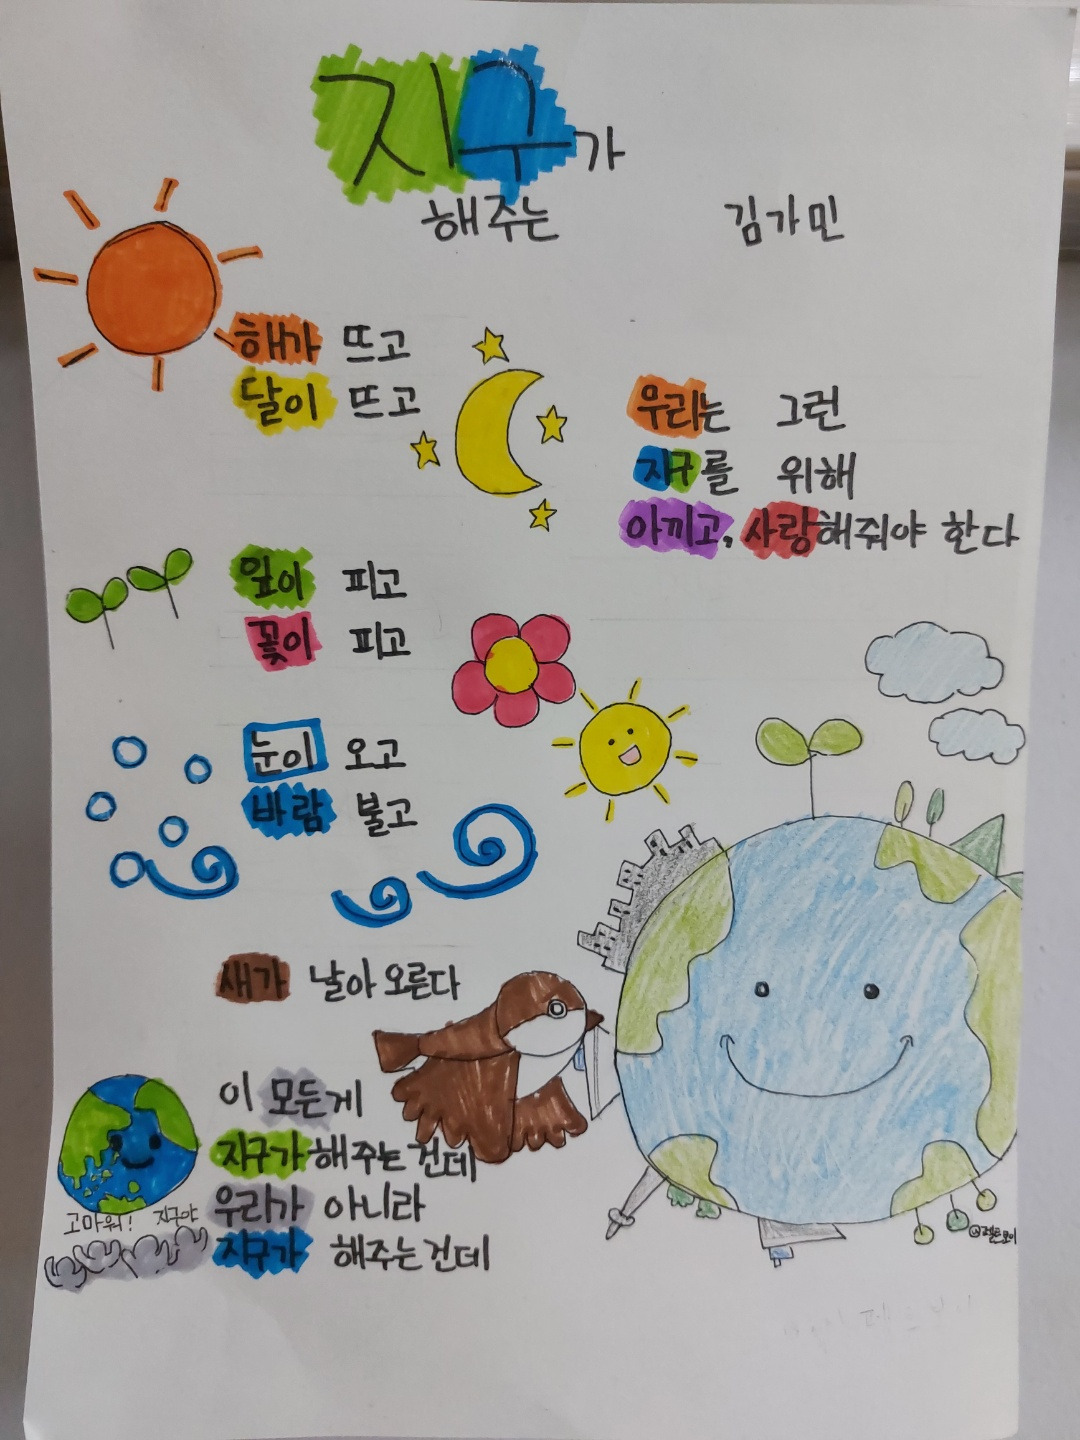 지구가
해주는
김가민
해가 뜨고
달이 뜨고
잎이 피고
꽃이 피고
눈이 오고
바람 불고
새가 날아오른다
이 모든게
지구가 해주는건데
우리가 아니라
지구가 해주는건데
우리는 그런
지구를 위해
아끼고, 사랑해줘야 한다
고마워! 지구야